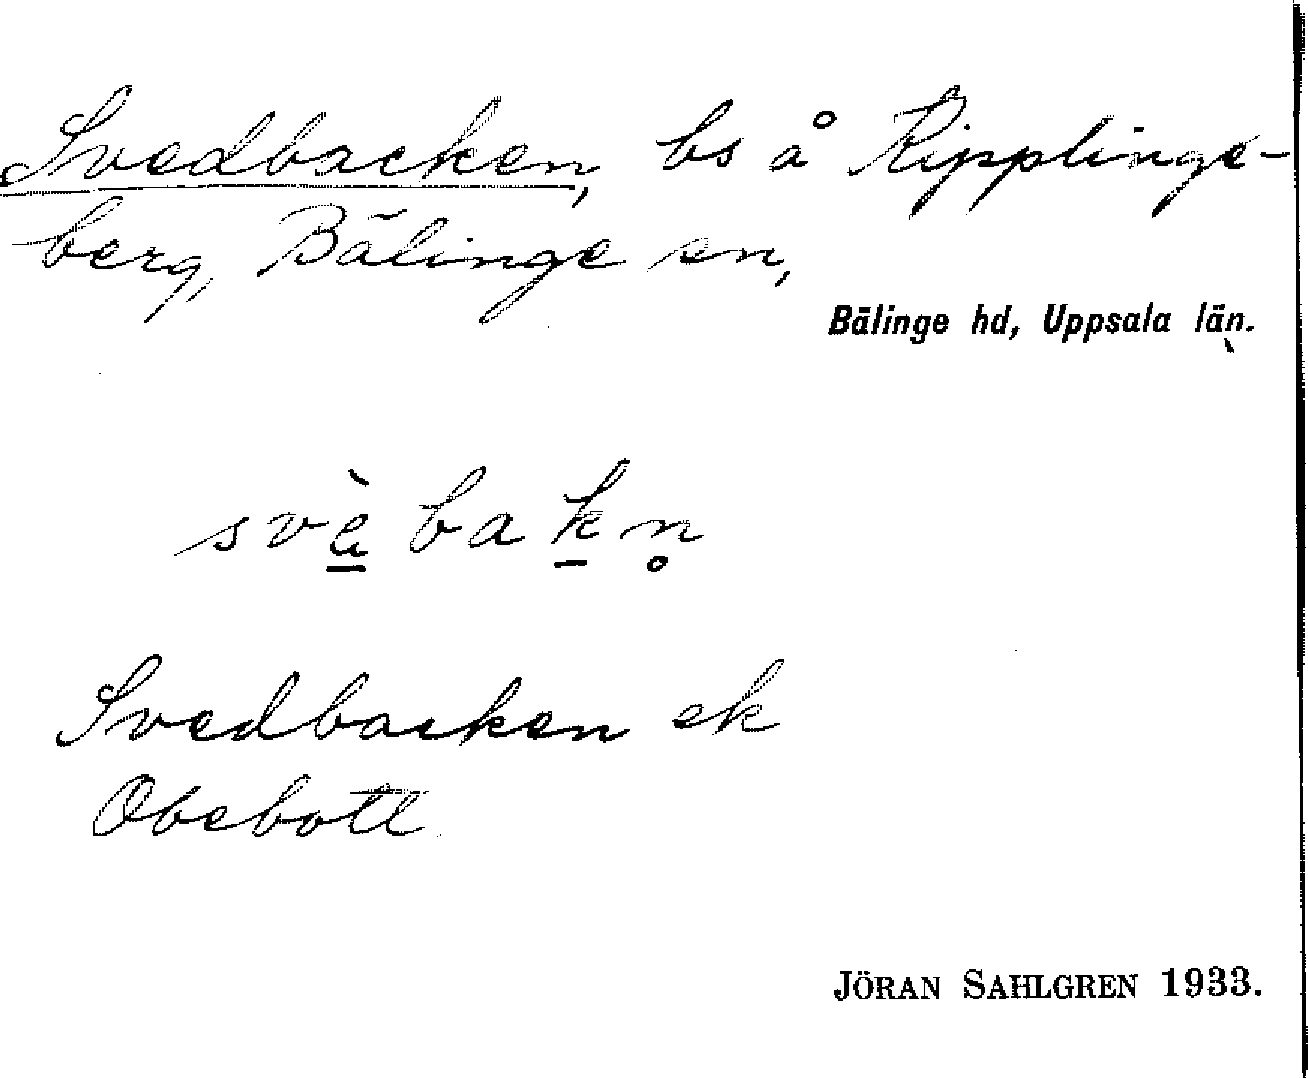 Svedbacken, bs å Kipplinge-
berg, Bälinge sn,
Bälinge hd, Uppsala län.
svè̱baḵn̥
Svedbacken ek
Obebotl
JÖRAN SAHLGREN 1933.